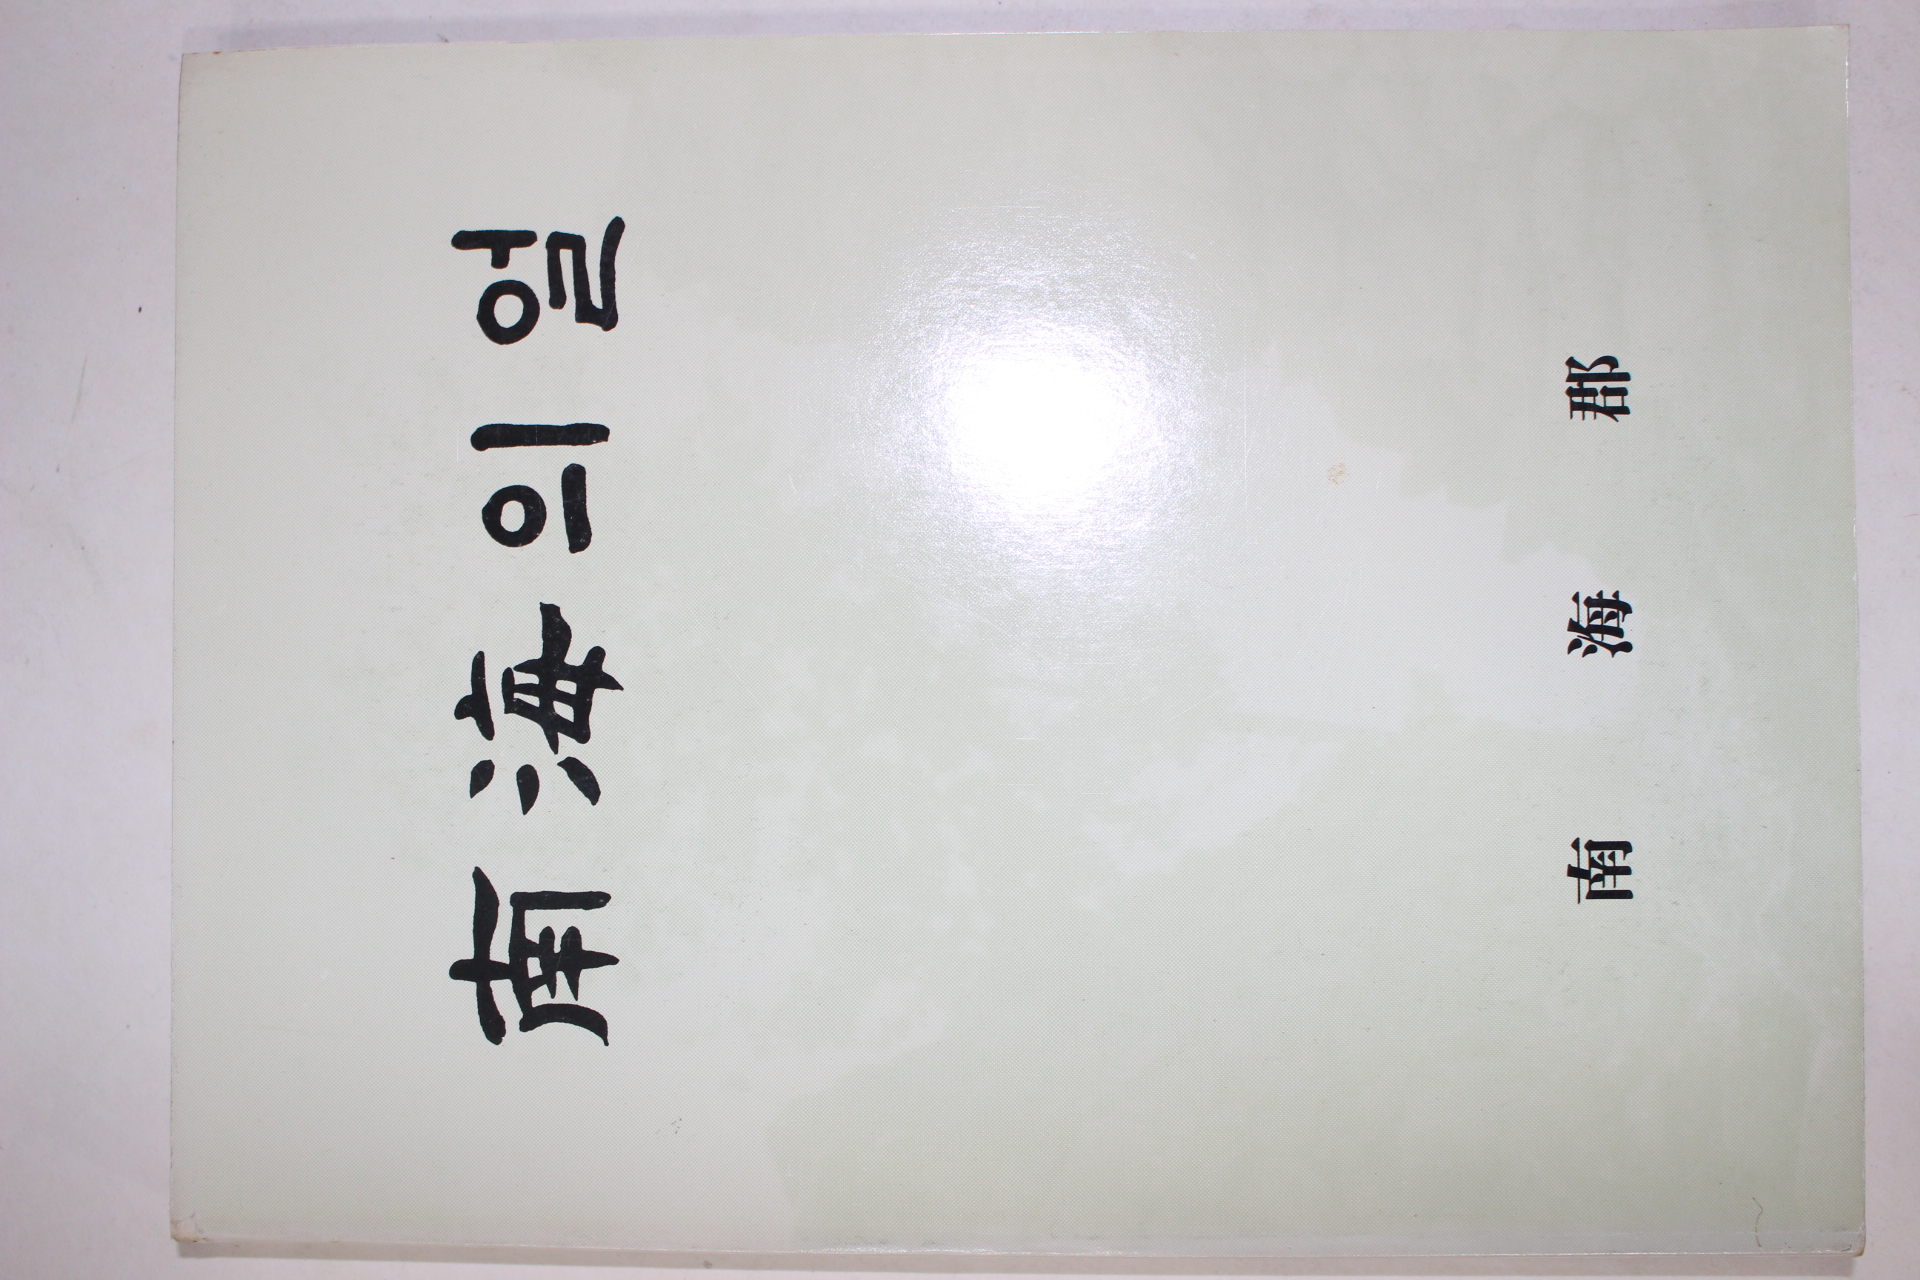 南海의 얼
南海郡